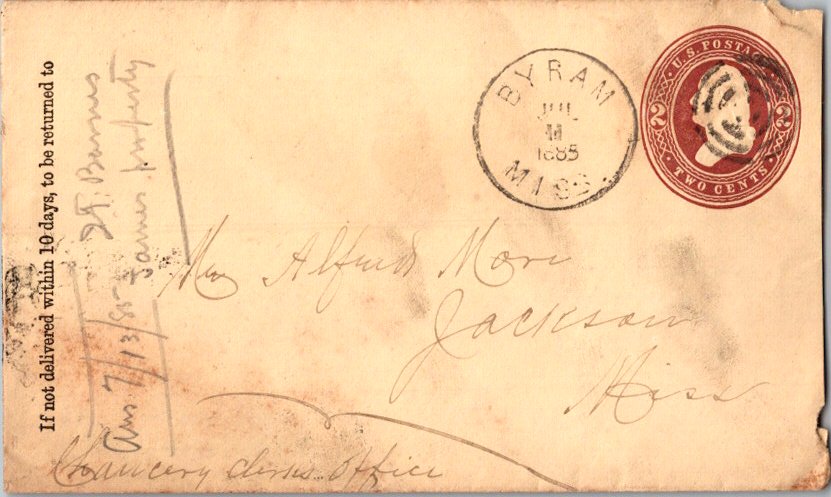 If not delivered within 10 days, to be returned to
Ans 7/13/85
Barnes
property
BYRAM
JUL
11
1885
MISS
U.S. POSTAGE
2 2
TWO CENTS
Alfred
Jackson
Miss
Chancery clerks office